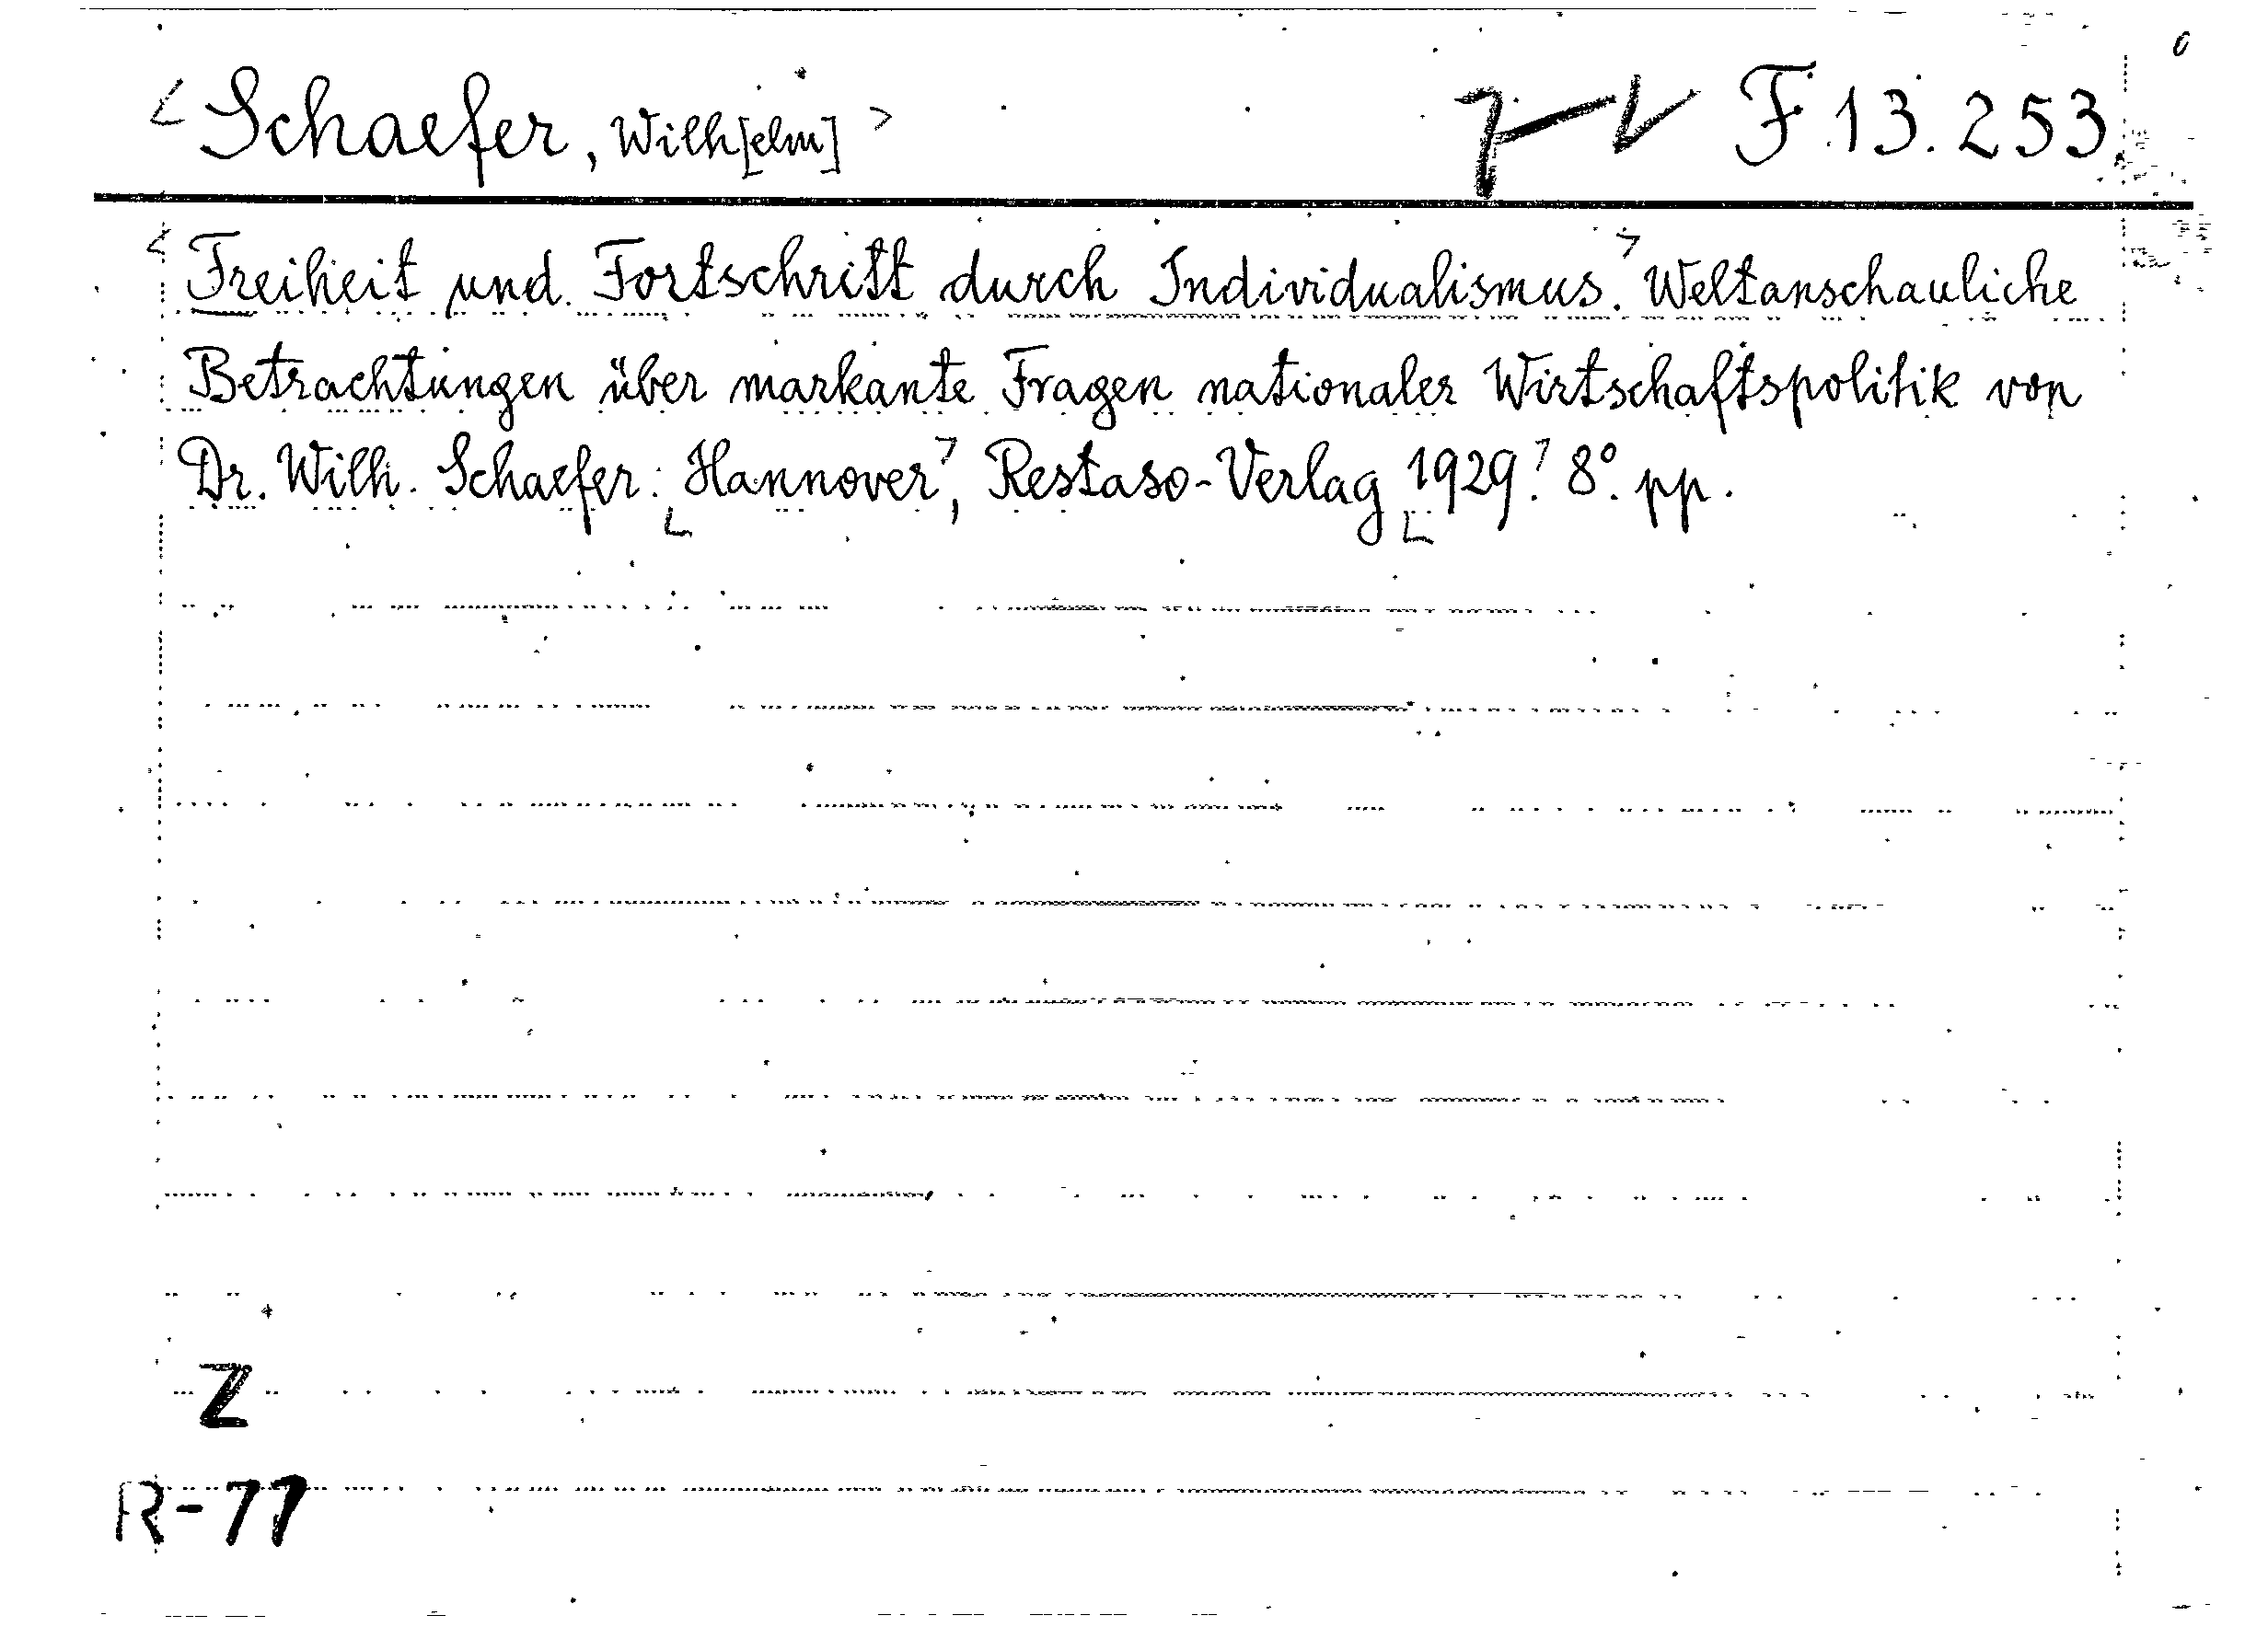 <Schaefer, Wilh[elm]> F.13.253.
<Freiheit und Fortschritt durch Individualismus.> Weltanschauliche
Betrachtungen über markante Fragen nationaler Wirtschaftspolitik von
Dr. Wilh. Schaefer: Hannover, Restaso-Verlag 1929. 8° pp.
Z
R-77